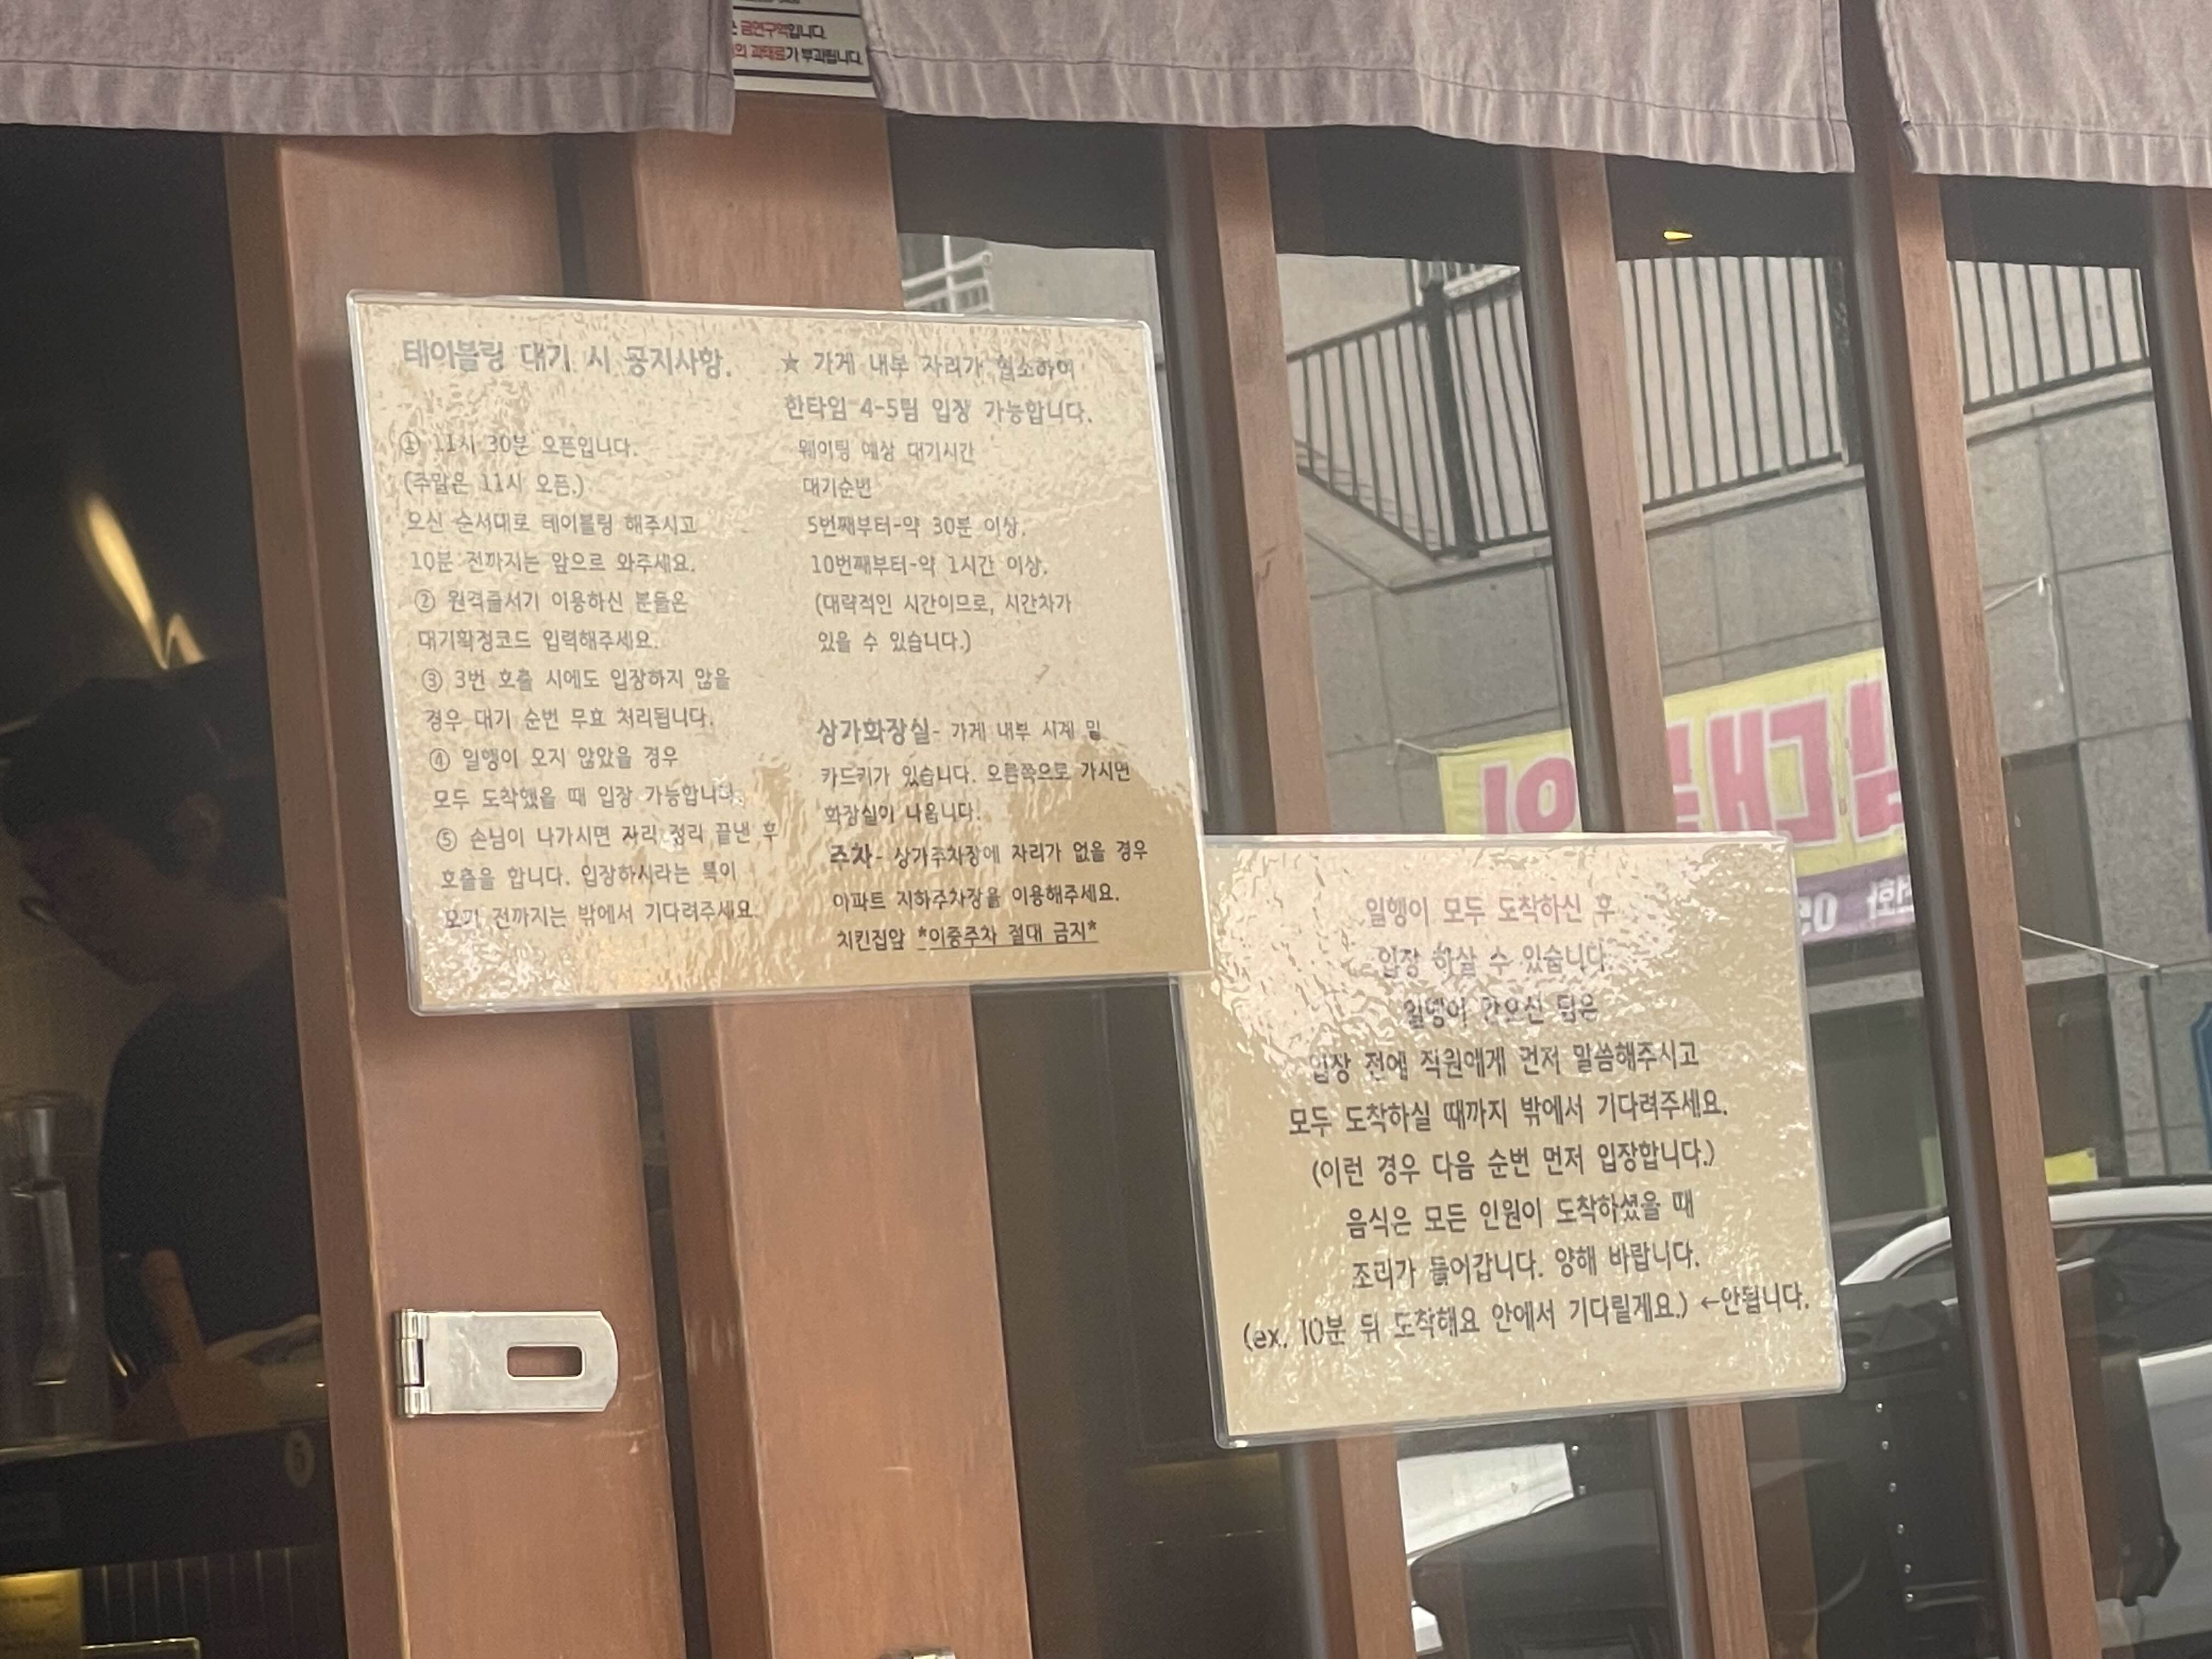 금연구역입니다.
과태료가 부과됩니다.
테이블링 대기 시 공지사항.
① 11시 30분 오픈입니다.
(주말은 11시 오픈.)
오신 순서대로 테이블링 해주시고
10분 전까지는 앞으로 와주세요.
② 원격줄서기 이용하신 분들은
대기확정코드 입력해주세요.
③ 3번 호출 시에도 입장하지 않을
경우 대기 순번 무효 처리됩니다.
④ 일행이 오지 않았을 경우
모두 도착했을 때 입장 가능합니다.
⑤ 손님이 나가시면 자리 정리 끝낸 후
호출을 합니다. 입장하시라는 톡이
오기 전까지는 밖에서 기다려주세요.
★ 가게 내부 자리가 협소하여
한타임 4-5팀 입장 가능합니다.
웨이팅 예상 대기시간
대기순번
5번째부터-약 30분 이상.
10번째부터-약 1시간 이상.
(대략적인 시간이므로, 시간차가
있을 수 있습니다.)
상가화장실- 가게 내부 시계 밑
카드키가 있습니다. 오른쪽으로 가시면
화장실이 나옵니다.
주차- 상가주차장에 자리가 없을 경우
아파트 지하주차장을 이용해주세요.
치킨집앞 *이중주차 절대 금지*
일행이 모두 도착하신 후
입장 하실 수 있습니다.
일행이 안오신 팀은
입장 전에 직원에게 먼저 말씀해주시고
모두 도착하실 때까지 밖에서 기다려주세요.
(이런 경우 다음 순번 먼저 입장합니다.)
음식은 모든 인원이 도착하셨을 때
조리가 들어갑니다. 양해 바랍니다.
(ex. 10분 뒤 도착해요 안에서 기다릴게요.) ←안됩니다.